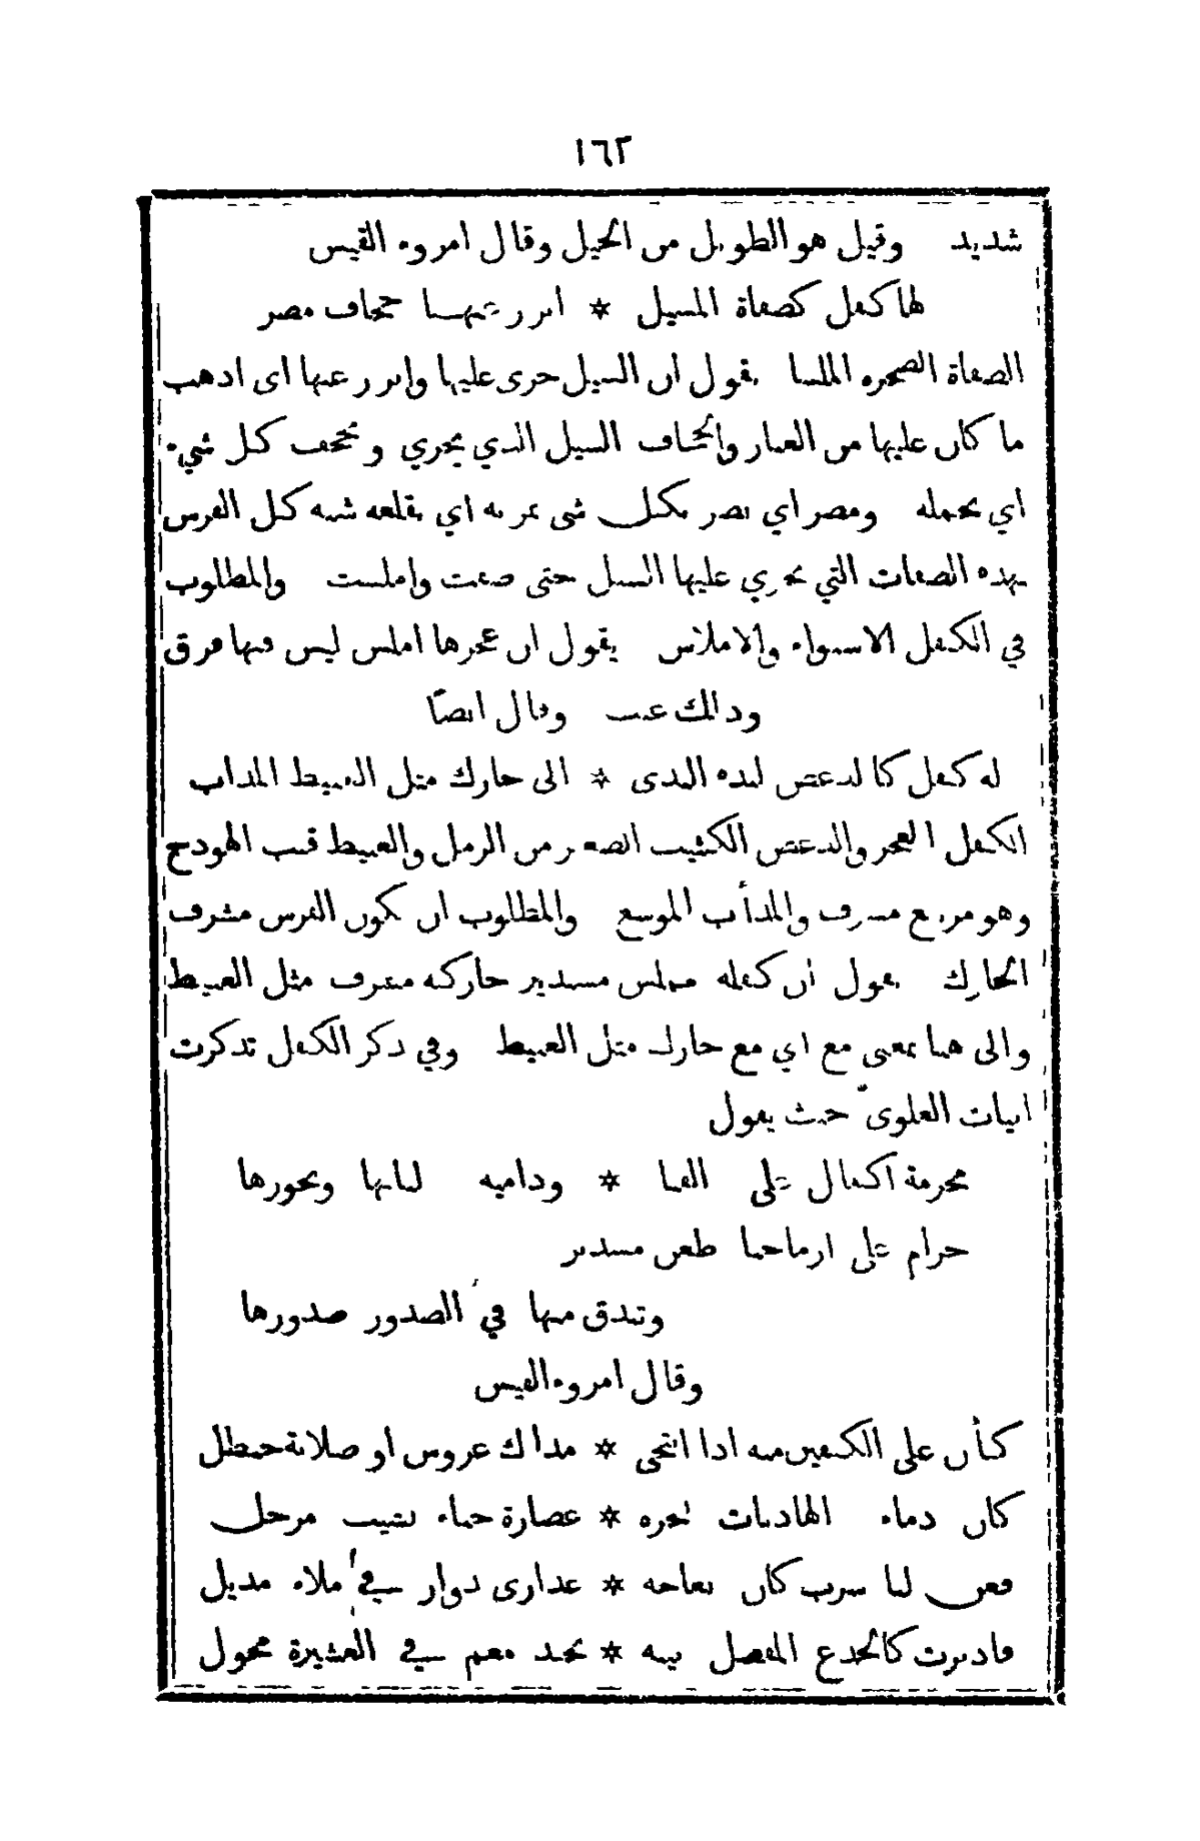 ١٦٢
شديد وقيل هو الطويل من الخيل وقال امروء القيس
لها كفل كصفاة المسيل * ابرز عنها جحاف مضر
الصفاة الصخره الملسا يقول ان السيل جرى عليها وابرز عنها اى اذهب
ما كان عليها من الغبار والجحاف السيل الذي يجري ويجحف كل شيء
اي يحمله ومضر اي يضر بكل شى يمر به اي يقلعه شبه كفل الفرس
بهذه الصفات التي يجري عليها السيل حتى صفت واملست والمطلوب
في الكفل الاستواء والاملاس يقول ان عجزها املس ليس فيها فرق
وذالك عيب وقال ايضًا
له كفل كالدعص لبده الندى * الى حارك مثل الغبيط المذاب
الكفل العجز والدعص الكثيب الصغير من الرمل والغبيط قتب الهودج
وهو مرتفع مشرف والمذأب الموسع والمطلوب ان يكون الفرس مشرف
الحارك يقول ان كفله مملس مستدير حاركه مشرف مثل الغبيط
والى هنا بمعنى مع اي مع حارك مثل الغبيط وفي ذكر الكفل تذكرت
ابيات العلوىّ حيث يقول
محرمة اكفال على القنا * ودامية لباتها ونحورها
حرام على ارماحنا طعن مستدبر
وتندق منها في الصدور صدورها
وقال امروء القيس
كأن على الكتفين منه اذا انتحى * مداك عروس او صلاية حنظل
كان دماء الهاديات بنحره * عصارة حناء بشيب مرجل
فعن لنا سرب كان نعاجه * عذارى دوار في ملاء مذيل
فادبرت كالجزع المفصل بينه * بجيد معم في العشيرة مخول